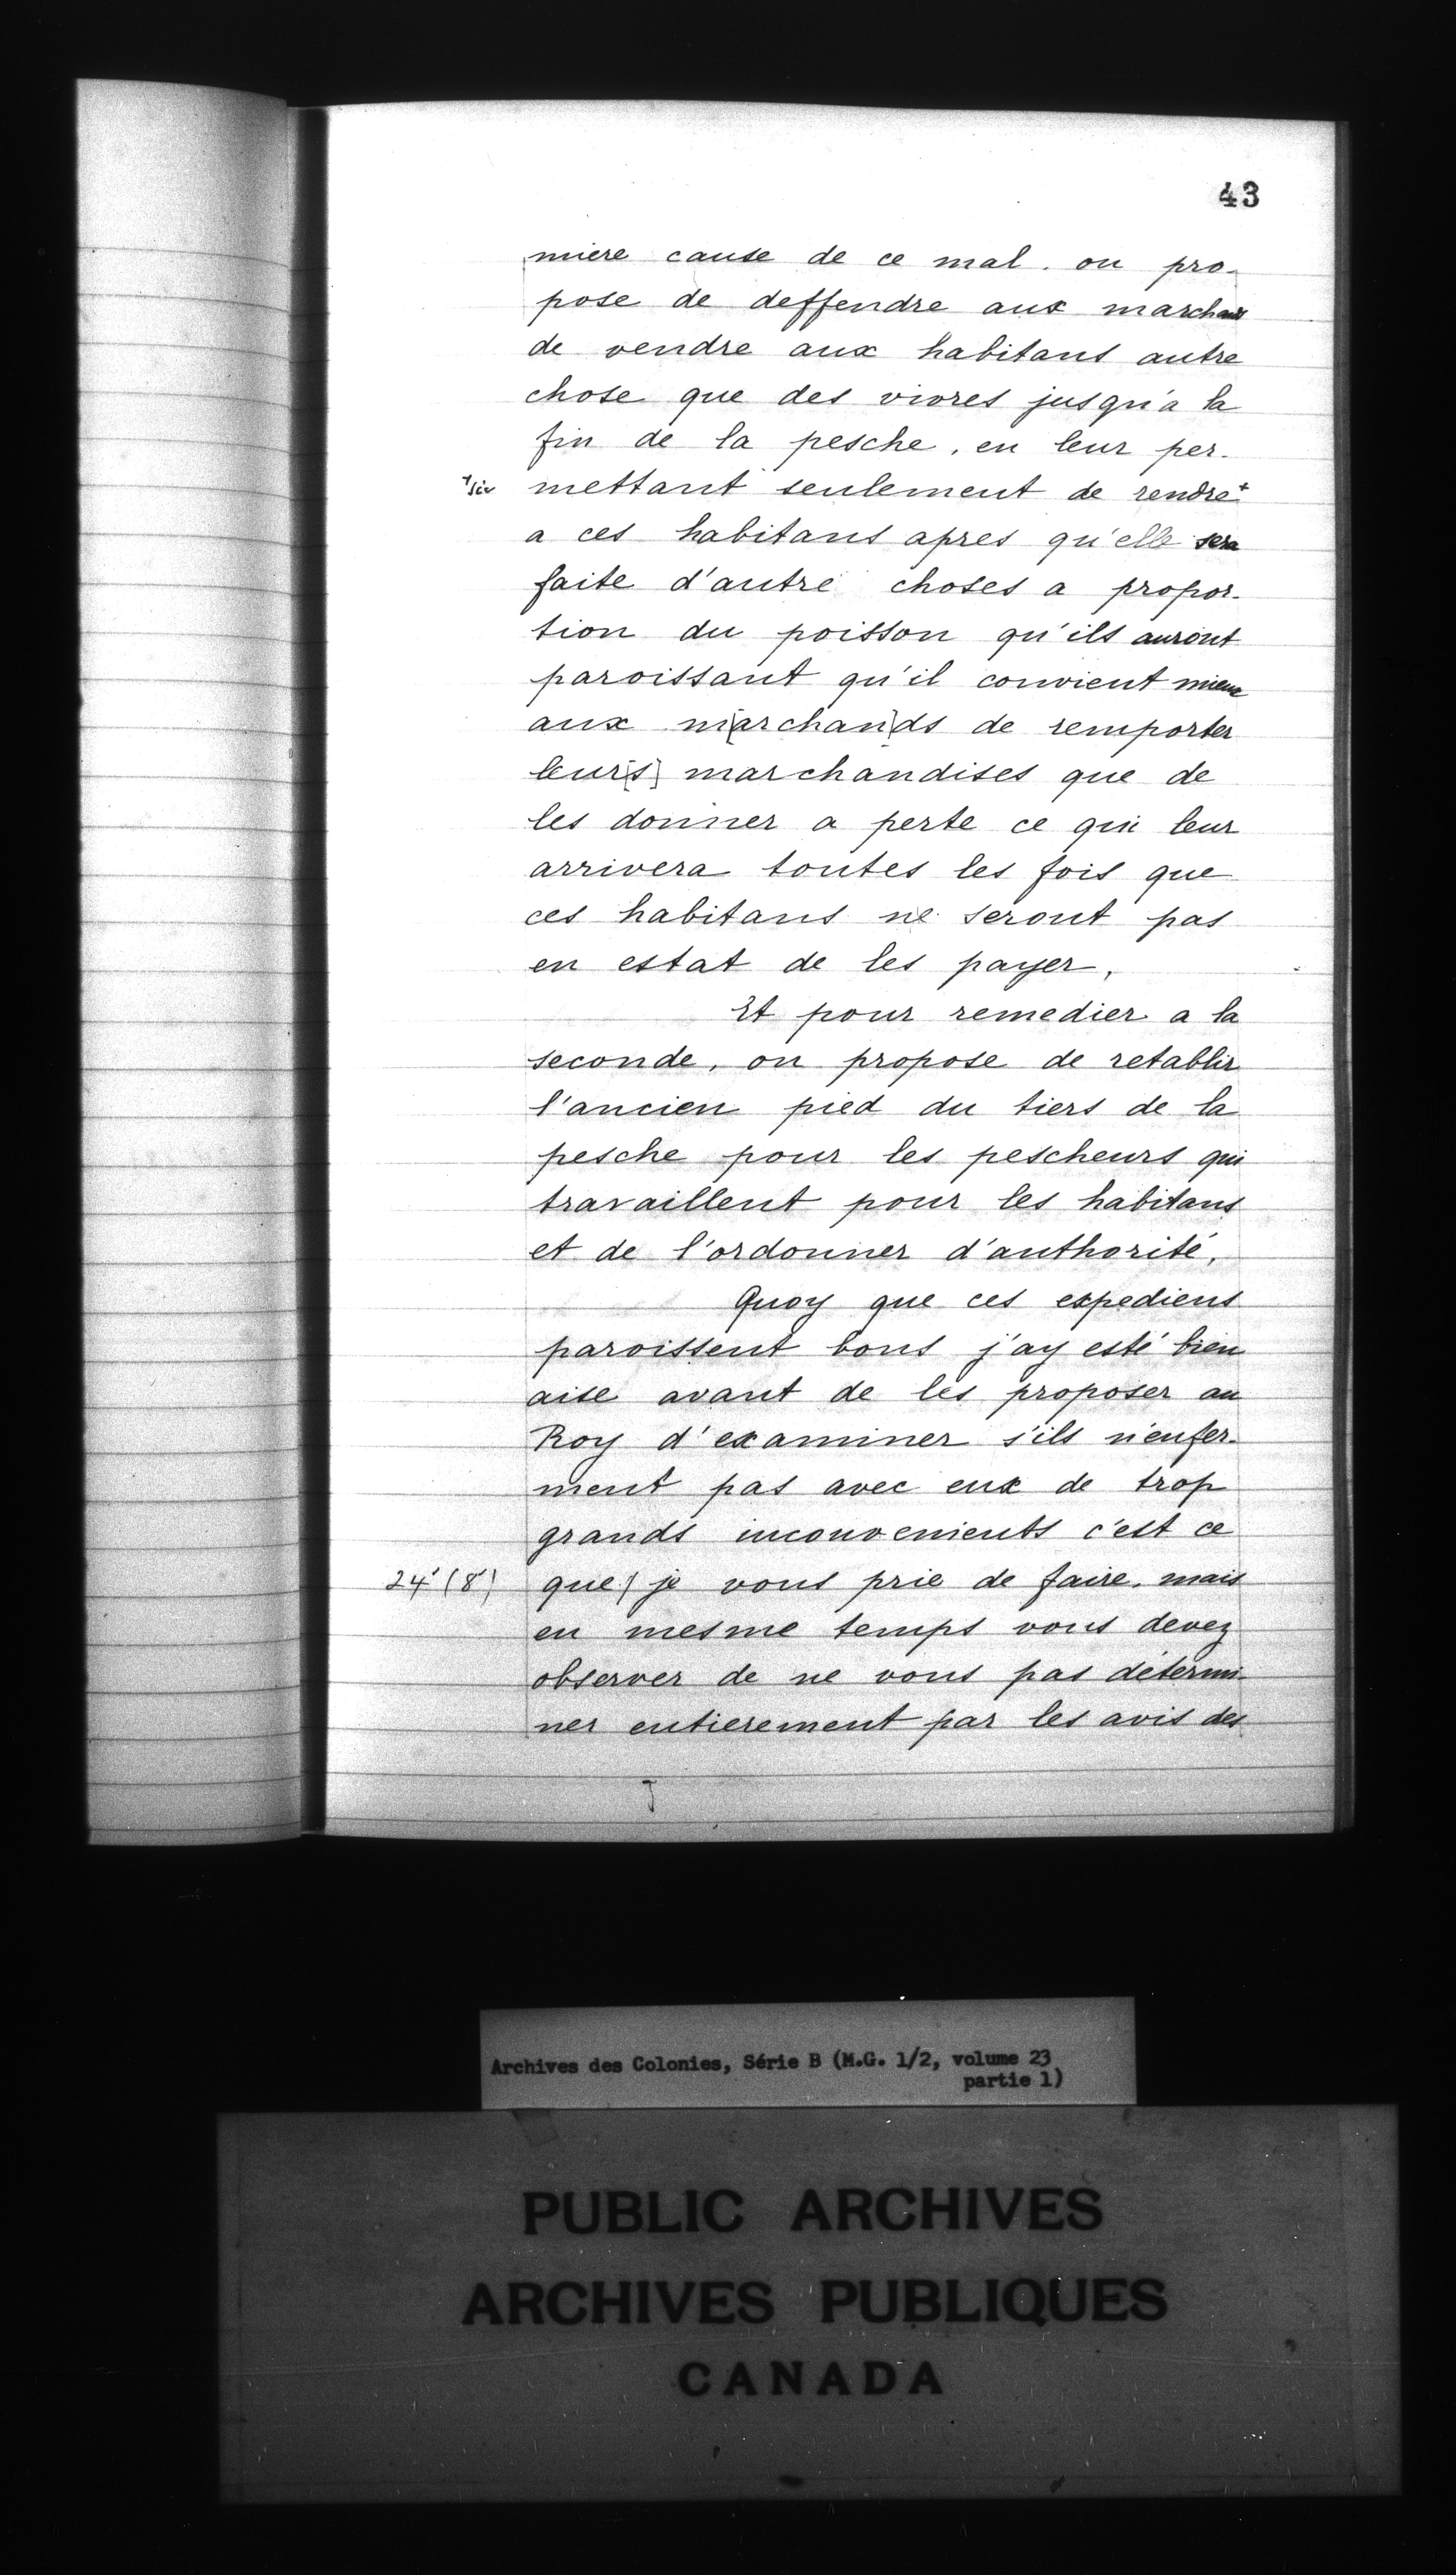 43
miere cause de ce mal. on pro-
pose de deffendre aux marchans
de vendre aux habitans autre
chose que des vivres jusqu'a la
fin de la pesche, en leur per-
+ sic mettant seulement de rendre+
a ces habitans apres qu'elle sera
faite d'autre choses a propor-
tion du poisson qu'ils auront
paroissant qu'il convient mieux
aux m[archan]ds de remporter
leur[s] marchandises que de
les donner a perte ce qui leur
arrivera toutes les fois que
ces habitans ne seront pas
en estat de les payer.
Et pour remedier a la
seconde, on propose de retablir
l'ancien pied du tiers de la
pesche pour les pescheurs qui
travaillent pour les habitans
et de l'ordonner d'authorité.
Quoy que ces expediens
paroissent bons j'ay esté bien
aise avant de les proposer au
Roy d'examiner s'ils n'enfer-
ment pas avec eux de trop
grands inconvenients c'est ce
24 (8) que/ je vous prie de faire. mais
en mesme temps vous devez
observer de ne vous pas détermi-
ner entierement par les avis des
Archives des Colonies, Série B (M.G. 1/2, volume 23
partie 1)
PUBLIC ARCHIVES
ARCHIVES PUBLIQUES
CANADA